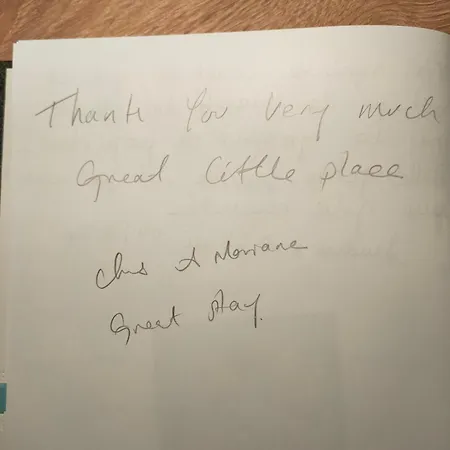 Thank You Very much
Great little place
Chris & Mariane
Great stay.